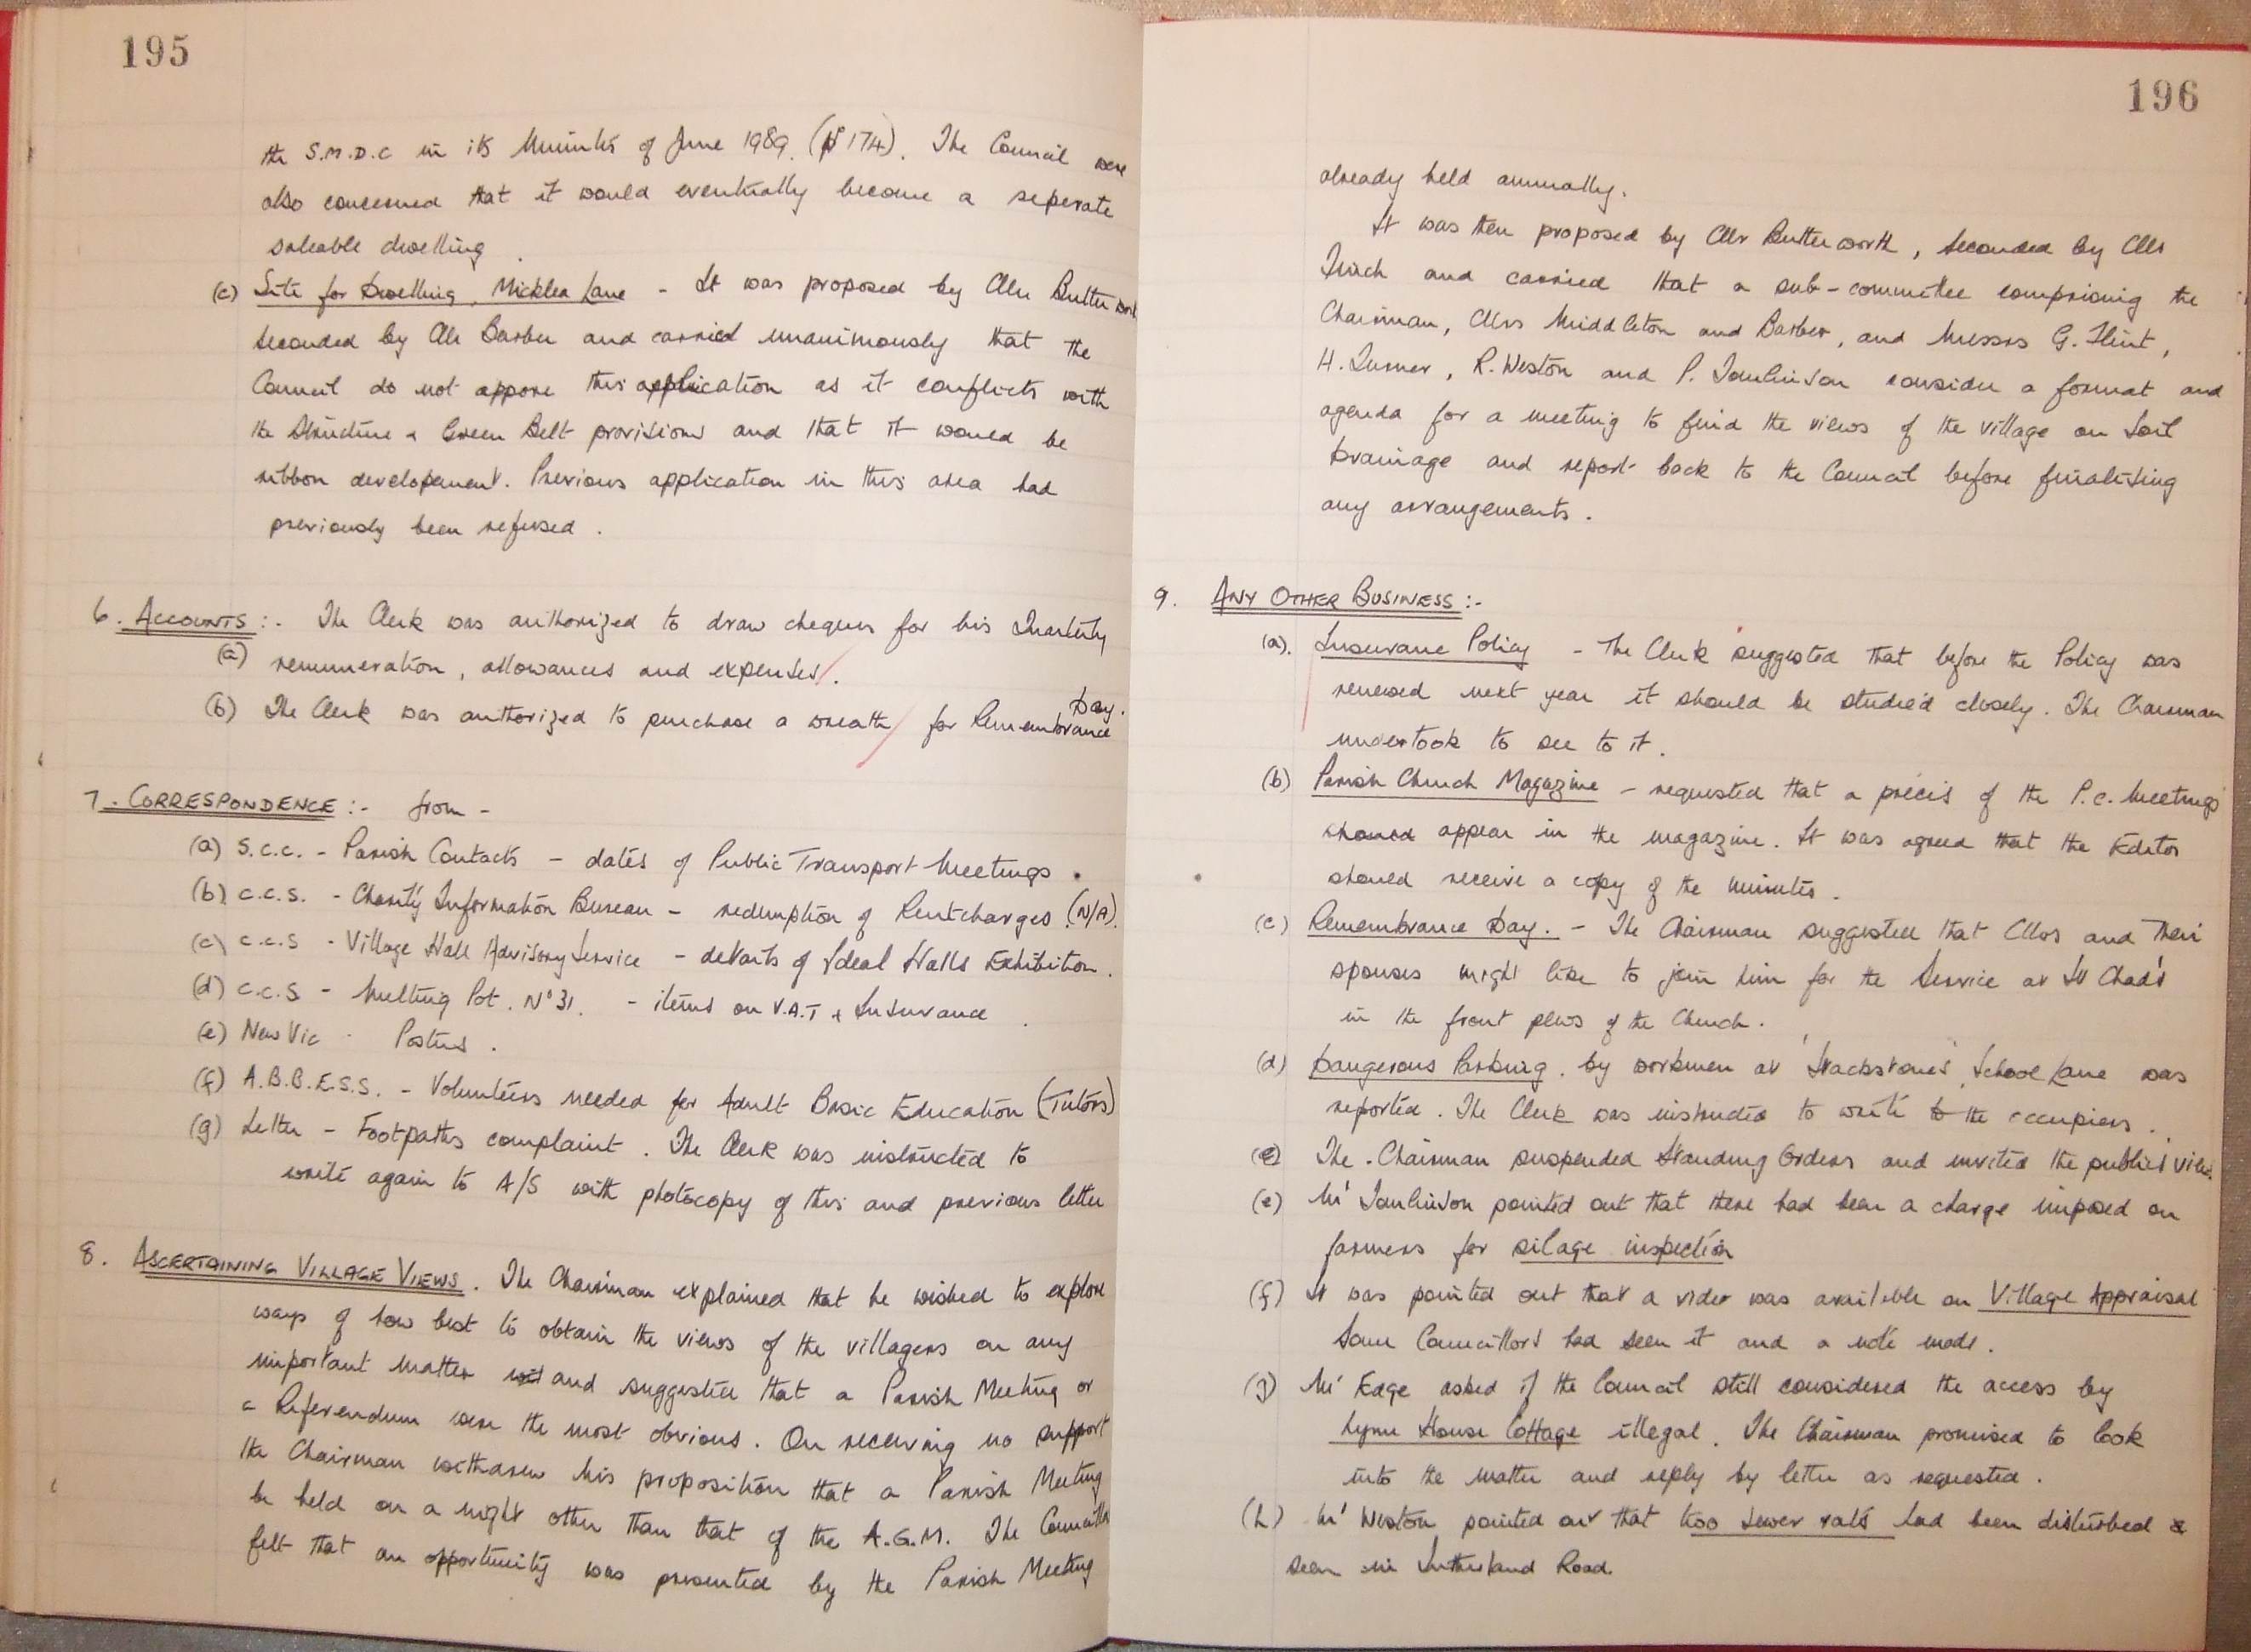 195
the S.M.D.C in its Minutes of June 1989. (P 174). The Council were
also concerned that it would eventually become a seperate
saleable dwelling.
(c) Site for Dwelling, Micklea Lane - It was proposed by Cllr Butterworth
seconded by Cllr Barber and carried unanimously that the
Council do not approve this application as it conflicts with
the Structure & Green Belt provisions and that it would be
ribbon developement. Previous application in this area had
previously been refused.
6. ACCOUNTS :- The Clerk was authorized to draw cheques for his Quarterly
(a) remuneration, allowances and expenses.
(b) The Clerk was authorized to purchase a wreath for Remembrance Day.
7. CORRESPONDENCE :- from -
(a) S.C.C. - Parish Contacts - dates of Public Transport Meetings.
(b) C.C.S. - Charity Information Bureau - redemption of Rentcharges (N/A).
(c) C.C.S - Village Hall Advisory Service - details of Ideal Halls Exhibition.
(d) C.C.S - Melting Pot. No 31. - items on V.A.T & Insurance.
(e) New Vic - Posters.
(f) A.B.B.E.S.S. - Volunteers needed for Adult Basic Education (Tutors)
(g) Letter - Footpaths complaint. The Clerk was instructed to
write again to A/S with photocopy of this and previous letter
8. ASCERTAINING VILLAGE VIEWS. The Chairman explained that he wished to explore
ways of how best to obtain the views of the villagers on any
important matter and suggested that a Parish Meeting or
a Referendum were the most obvious. On receiving no support
the Chairman withdrew his proposition that a Parish Meeting
be held on a night other than that of the A.G.M. The Councillors
felt that an opportunity was presented by the Parish Meeting
196
already held annually.
It was then proposed by Cllr Butterworth, seconded by Cllr
Finch and carried that a sub-committee comprising the
Chairman, Cllrs Middleton and Barber, and Messrs G. Flint,
H. Turner, R. Weston and P. Tomlinson consider a format and
agenda for a meeting to find the views of the village on Soil
Drainage and report back to the Council before finalising
any arrangements.
9. ANY OTHER BUSINESS :-
(a). Insurance Policy - The Clerk suggested that before the Policy was
renewed next year it should be studied closely. The Chairman
undertook to see to it.
(b) Parish Church Magazine - requested that a précis of the P.C. Meetings
should appear in the magazine. It was agreed that the Editor
should receive a copy of the minutes.
(c) Remembrance Day. - The Chairman suggested that Cllrs and their
spouses might like to join him for the Service at St Chad's
in the front pews of the Church.
(d) Dangerous Parking. by workmen at 'Stackstones', School Lane was
reported. The Clerk was instructed to write to the occupiers.
(e) The Chairman suspended Standing Orders and invited the publics views.
(e) Mr Tomlinson pointed out that there had been a charge imposed on
farmers for silage inspection
(f) It was pointed out that a video was available on Village Appraisal
Some Councillors had seen it and a note made.
(g) Mr Edge asked if the Council still considered the access by
Lynn House Cottage illegal. The Chairman promised to look
into the matter and reply by letter as requested.
(h) Mr Weston pointed out that two sewer rats had been disturbed &
seen in Sutherland Road.